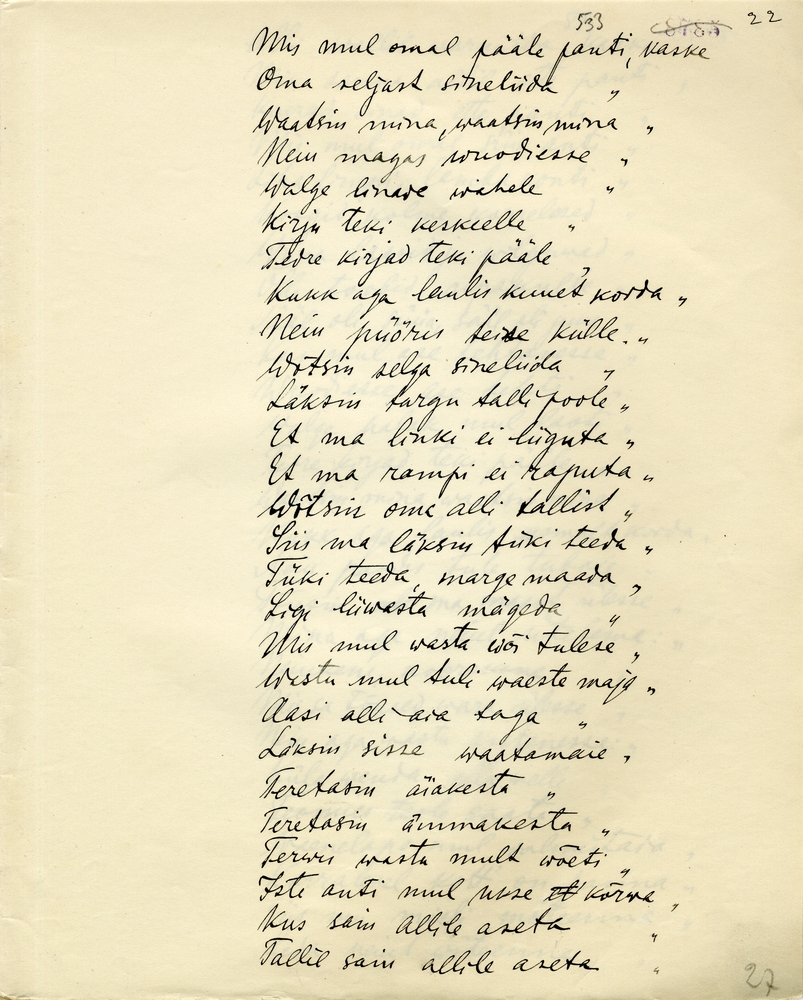 533 22
Mis mul omal pääle panti, kaske
Oma seljast sineliida "
Waatsin mina, waatsin mina "
Nein magas wuodiesse "
Walge linade wahele "
Kirju teki keskeelle "
Tedre kirjad teki pääle "
Kukk aga laulis kunet korda "
Nein pööris teise külle. "
Wõtsin selga sineliida "
Läksin targu talli poole "
Et ma linki ei liiguta "
Et ma rampi ei raputa "
Wõtsin oma alli tallist "
Siis ma läksin tüki teeda "
Tüki teeda, marge maada "
Ligi liiwasta mägeda "
Mis mul wasta wõi tulese "
Wasta mul tuli waeste maja "
Aasi alli aia taga "
Läksin sisse waatamaie "
Teretasin äiakesta "
Teretasin ämmakesta "
Terwis wasta mult wõeti "
Iste anti mul ukse kõrwa "
Kus sain allile aseta "
Tallil sain allile aseta "
27